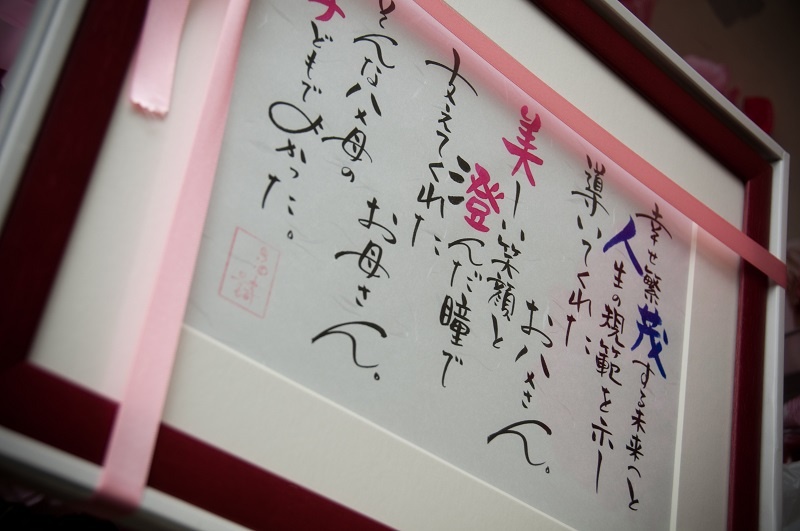 幸せ繁茂する未来へと
人生の規範を示し
導いてくれた
お父さん。
美しい笑顔と
澄んだ瞳で
支えてくれた
お母さん。
そんな父母の
子どもでよかった。